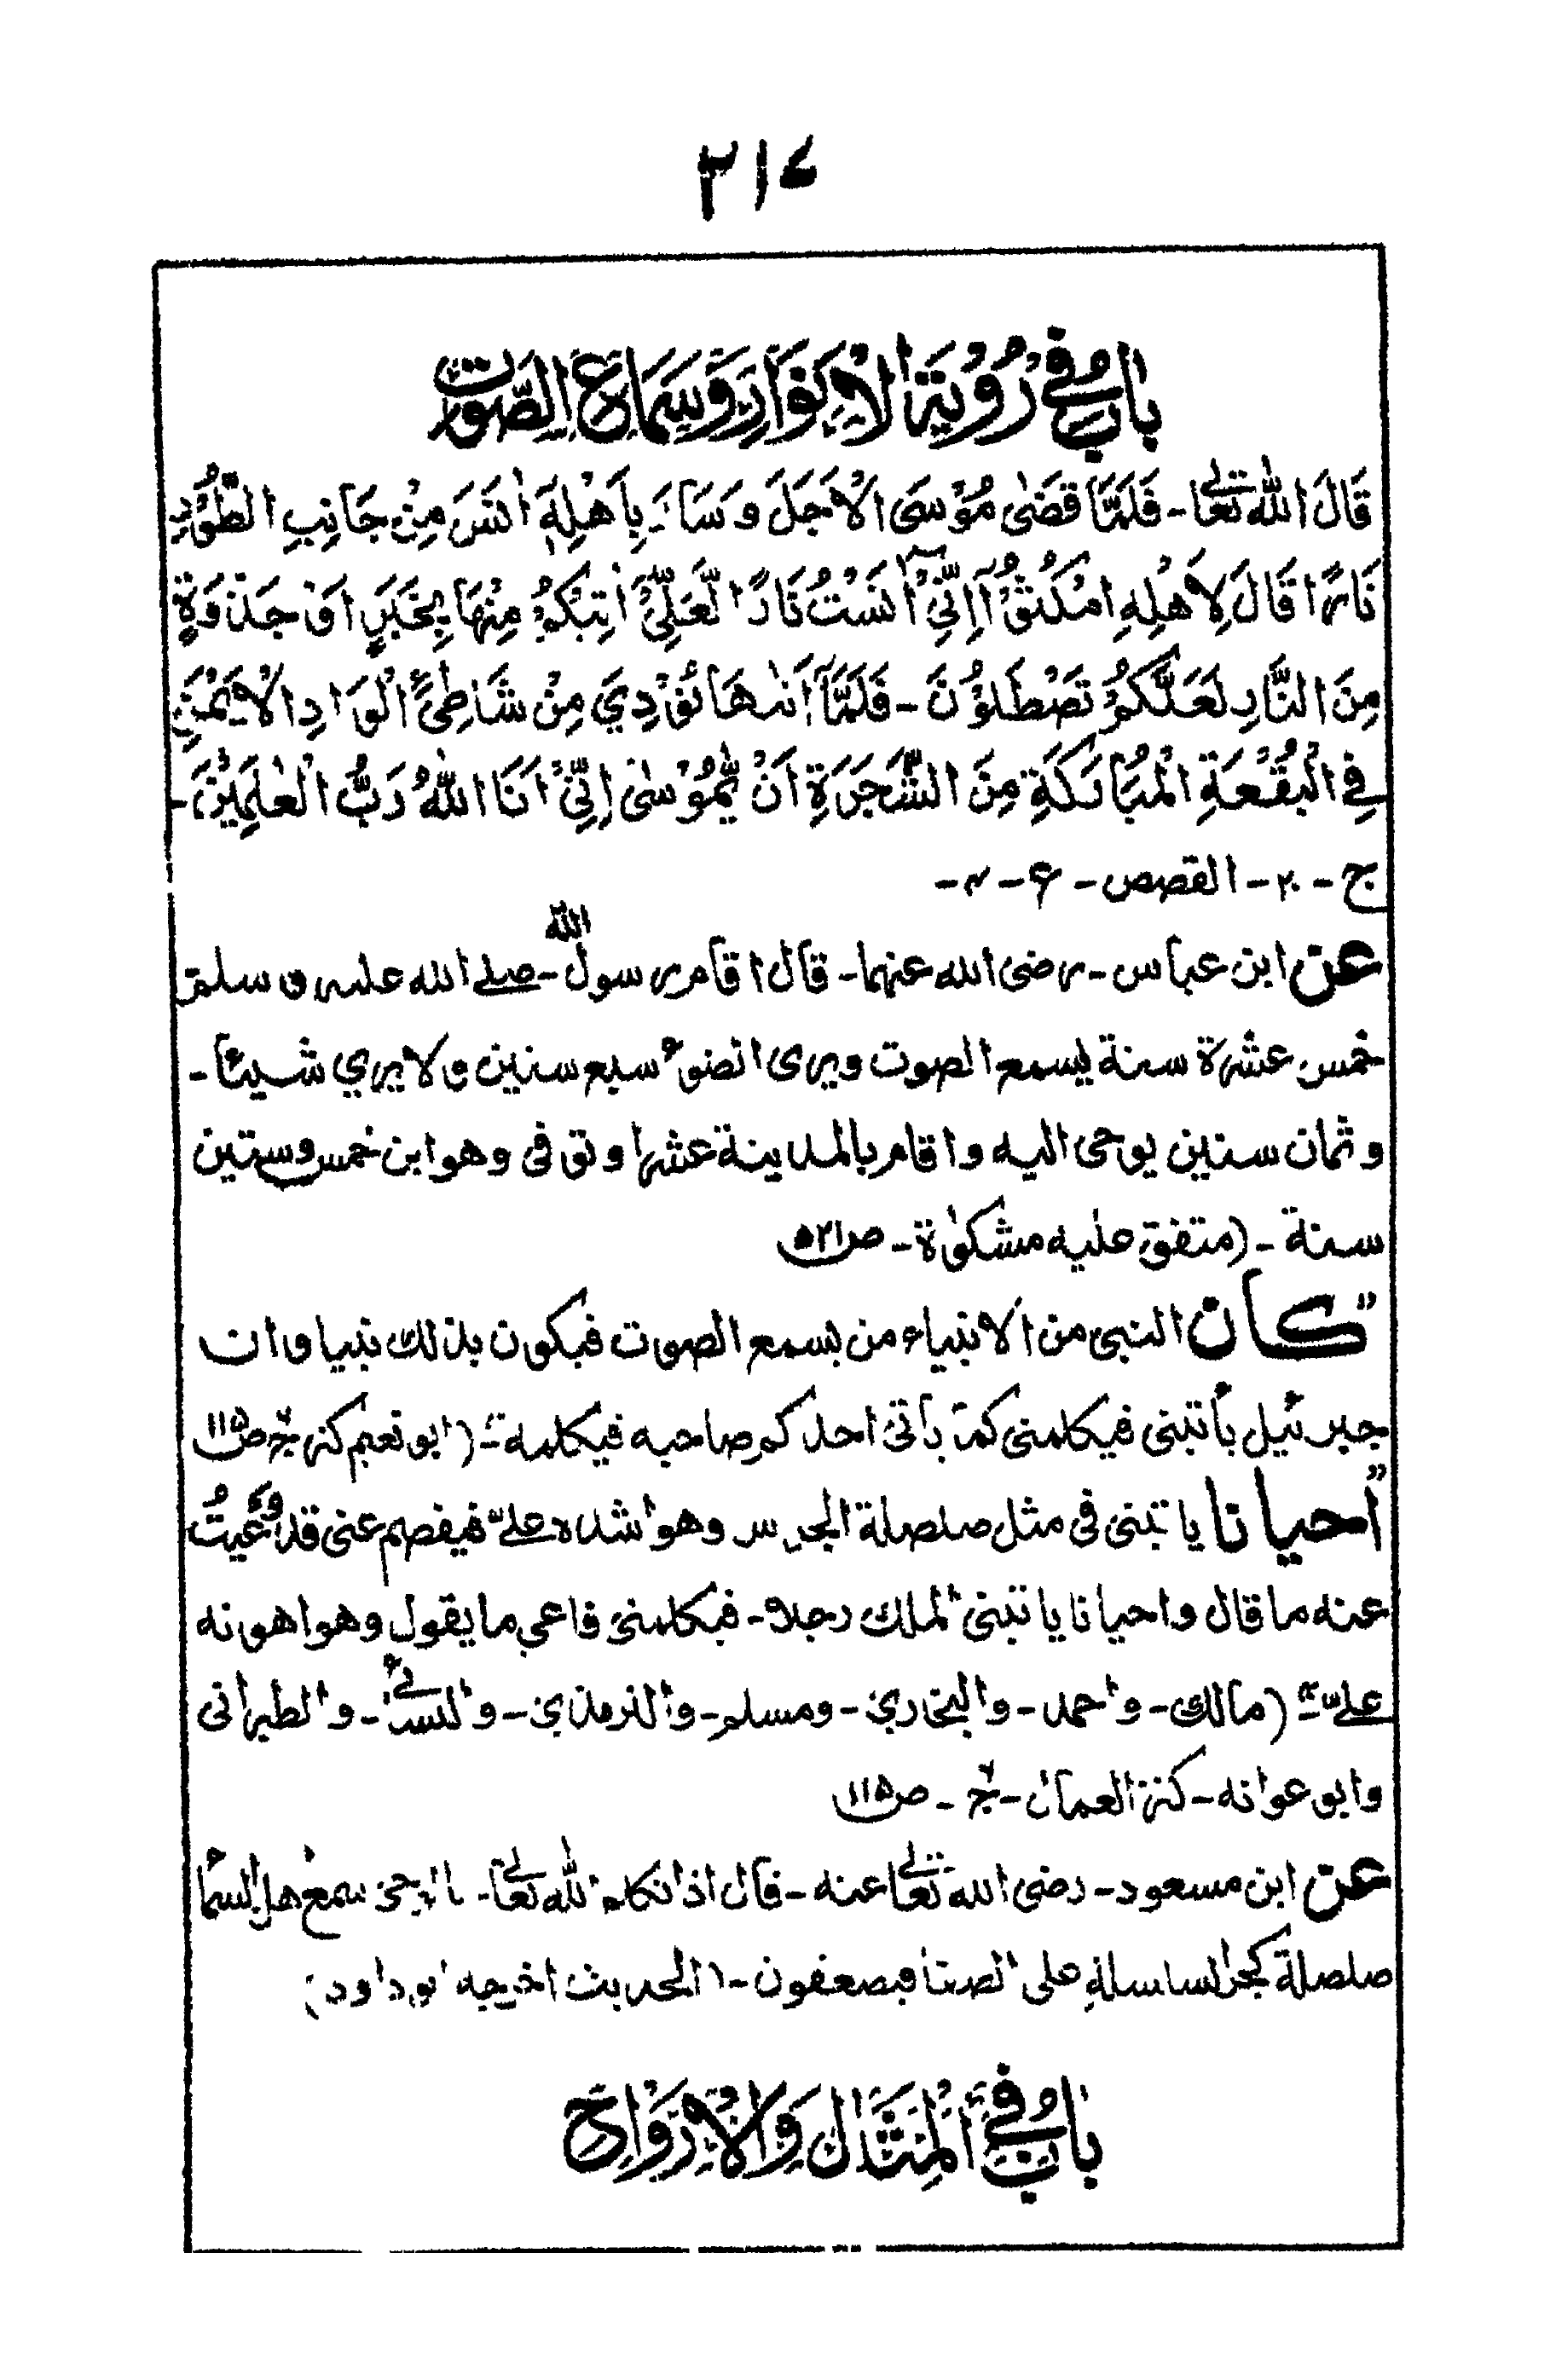 ۲۱۷
بَابٌ فِي رُؤْيَةِ الْاَنْوَارِ وَسَمَاعِ الصَّوْتِ
قَالَ اللهُ تَعَالٰى - فَلَمَّا قَضٰى مُوْسَى الْاَجَلَ وَسَارَ بِاَهْلِهٖٓ اٰنَسَ مِنْ جَانِبِ الطُّوْرِ
نَارًا قَالَ لِاَهْلِهِ امْكُثُوْٓا اِنِّيْٓ اٰنَسْتُ نَارًا لَّعَلِّيْٓ اٰتِيْكُمْ مِنْهَا بِخَبَرٍ اَوْ جَذْوَةٍ
مِنَ النَّارِ لَعَلَّكُمْ تَصْطَلُوْنَ - فَلَمَّآ اَتٰىهَا نُوْدِيَ مِنْ شَاطِئِ الْوَادِ الْاَيْمَنِ
فِي الْبُقْعَةِ الْمُبَارَكَةِ مِنَ الشَّجَرَةِ اَنْ يّٰمُوْسٰى اِنِّيْٓ اَنَا اللهُ رَبُّ الْعٰلَمِيْنَ -
ج - ۲۰ - القصص - ع - ۴ -
عن ابن عباس - رضى الله عنهما - قال اقام رسول الله - صلے الله عليه و سلم
خمس عشرة سنة يسمع الصوت ويرى الضوء سبع سنين ولا يري شيئا -
و ثمان سنين يوحى اليه واقام بالمدينة عشرا وتوفى وهو ابن خمس وستين
سنة - (متفق عليه مشكوٰة - ص ۵۲۱
"كان النبى من الانبياء من يسمع الصوت فيكون بذلك نبيا وان
جبرئيل يأتينى فيكلمنى كما يأتى احدكم صاحبه فيكلمه" - (ابو نعيم كنز ج ۶ ص ۱۱۵
"احيانا ياتينى فى مثل صلصلة الجرس وهو اشده علىّ فيفصم عنى قد وَعَيتُ
عنه ما قال واحيانا ياتينى الملك رجلا - فيكلمنى فاعي ما يقول وهو اهونه
علىّ" - (مالك - واحمد - والبخاري - ومسلم - والترمذي - والنسائى - والطبرانى
وابو عوانه - كنز العمال - ج ۶ - ص ۱۱۵
عن ابن مسعود - رضى الله تعالى عنه - قال اذا تكلم الله تعالى - بالوحى سمع اهل السماء
صلصلة كجر السلسلة على الصفا فيصعقون - (الحديث اخرجه ابو داود)
بَابٌ فِي الْمِثَالِ وَالْاَرْوَاحِ